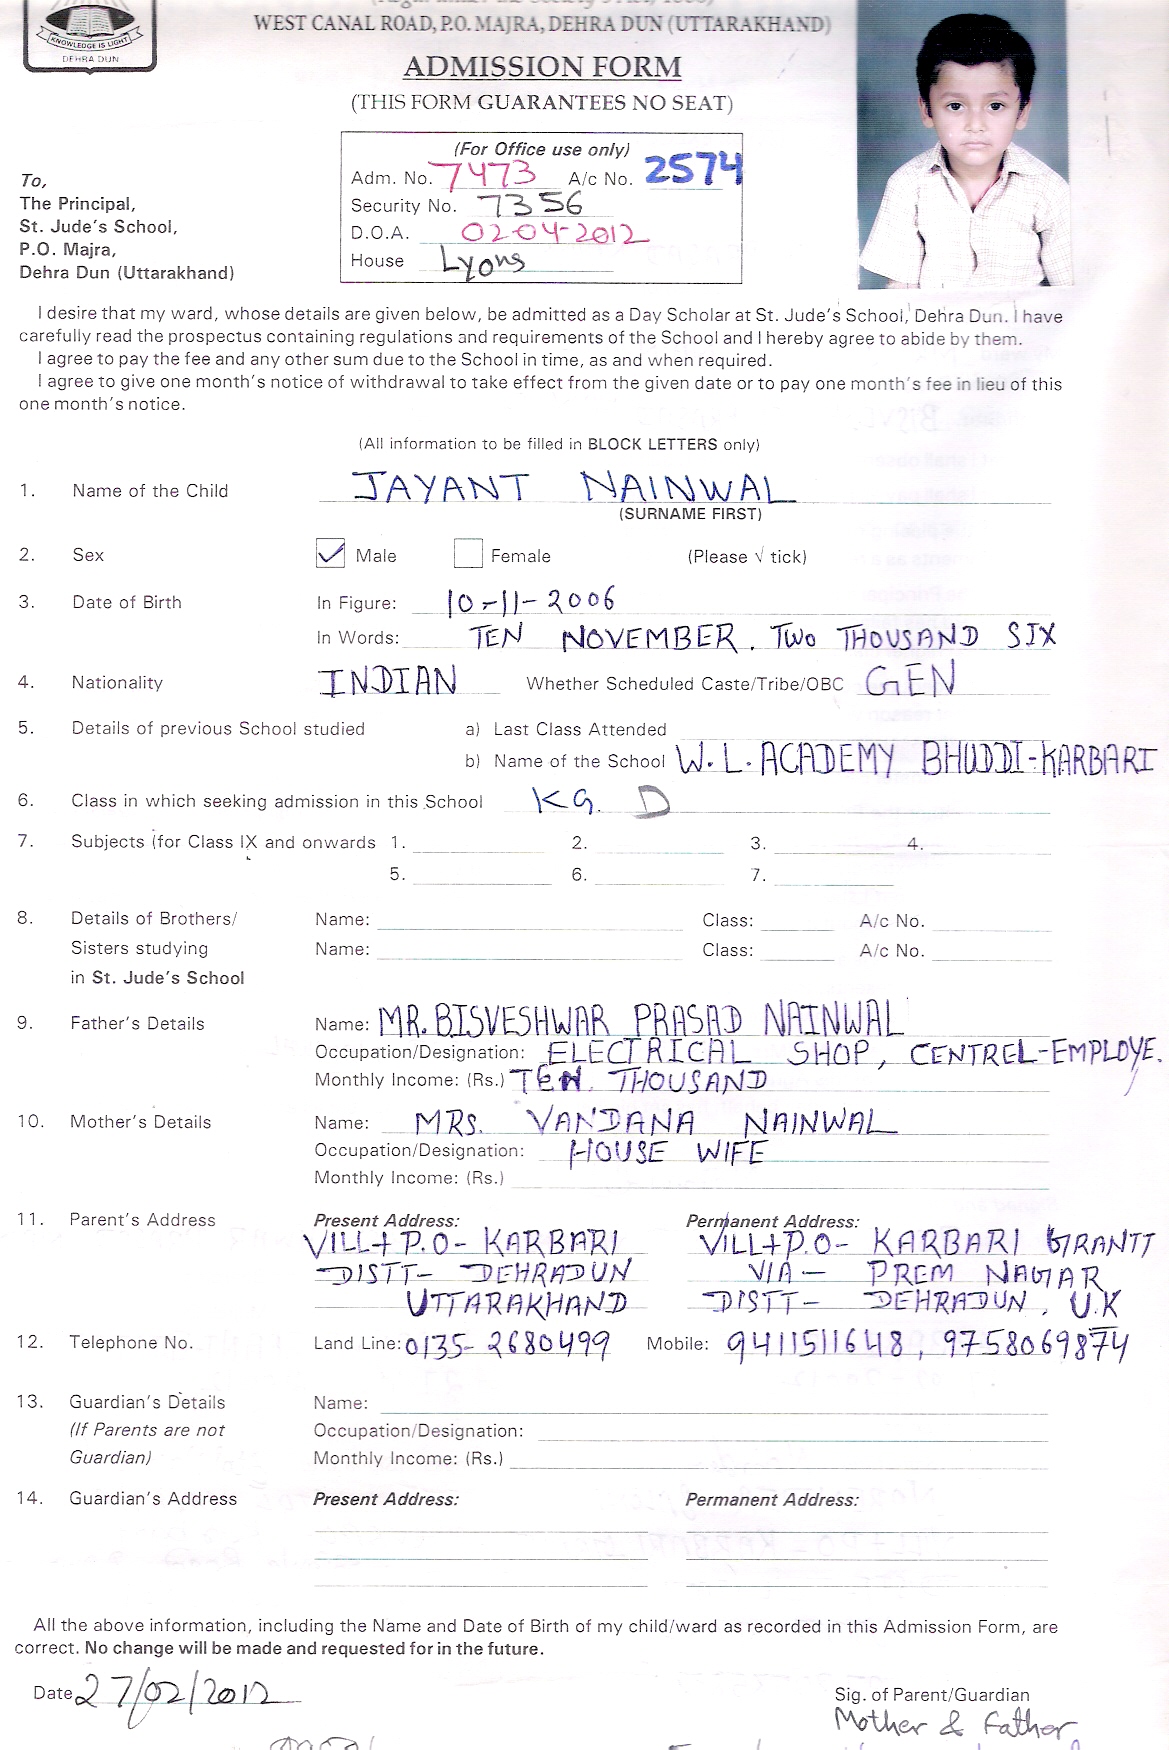 KNOWLEDGE IS LIGHT
DEHRA DUN
WEST CANAL ROAD, P.O. MAJRA, DEHRA DUN (UTTARAKHAND)
ADMISSION FORM
(THIS FORM GUARANTEES NO SEAT)
(For Office use only)
Adm. No. 7473 A/c No. 2574
Security No. 7356
D.O.A. 02-04-2012
House Lyons
To,
The Principal,
St. Jude's School,
P.O. Majra,
Dehra Dun (Uttarakhand)
I desire that my ward, whose details are given below, be admitted as a Day Scholar at St. Jude's School, Dehra Dun. I have
carefully read the prospectus containing regulations and requirements of the School and I hereby agree to abide by them.
I agree to pay the fee and any other sum due to the School in time, as and when required.
I agree to give one month's notice of withdrawal to take effect from the given date or to pay one month's fee in lieu of this
one month's notice.
(All information to be filled in BLOCK LETTERS only)
1. Name of the Child JAYANT NAINWAL
(SURNAME FIRST)
2. Sex ✓ Male Female (Please √ tick)
3. Date of Birth In Figure: 10-11-2006
In Words: TEN NOVEMBER, TWO THOUSAND SIX
4. Nationality INDIAN Whether Scheduled Caste/Tribe/OBC GEN
5. Details of previous School studied a) Last Class Attended
b) Name of the School W.L. ACADEMY BHUDDI-KARBARI
6. Class in which seeking admission in this School KG. D
7. Subjects (for Class IX and onwards 1. 2. 3. 4.
5. 6. 7.
8. Details of Brothers/ Name: Class: A/c No.
Sisters studying Name: Class: A/c No.
in St. Jude's School
9. Father's Details Name: MR. BISVESHWAR PRASAD NAINWAL
Occupation/Designation: ELECTRICAL SHOP, CENTREL-EMPLOYE.
Monthly Income: (Rs.) TEN THOUSAND
10. Mother's Details Name: MRS. VANDANA NAINWAL
Occupation/Designation: HOUSE WIFE
Monthly Income: (Rs.)
11. Parent's Address Present Address: Permanent Address:
VILL+P.O- KARBARI VILL+P.O- KARBARI GRANTT
DISTT- DEHRADUN VIA- PREM NAGAR
UTTARAKHAND DISTT- DEHRADUN, U.K
12. Telephone No. Land Line: 0135-2680499 Mobile: 9411511648, 9758069874
13. Guardian's Details Name:
(If Parents are not Occupation/Designation:
Guardian) Monthly Income: (Rs.)
14. Guardian's Address Present Address: Permanent Address:
All the above information, including the Name and Date of Birth of my child/ward as recorded in this Admission Form, are
correct. No change will be made and requested for in the future.
Date 27/02/2012 Sig. of Parent/Guardian
Mother & Father